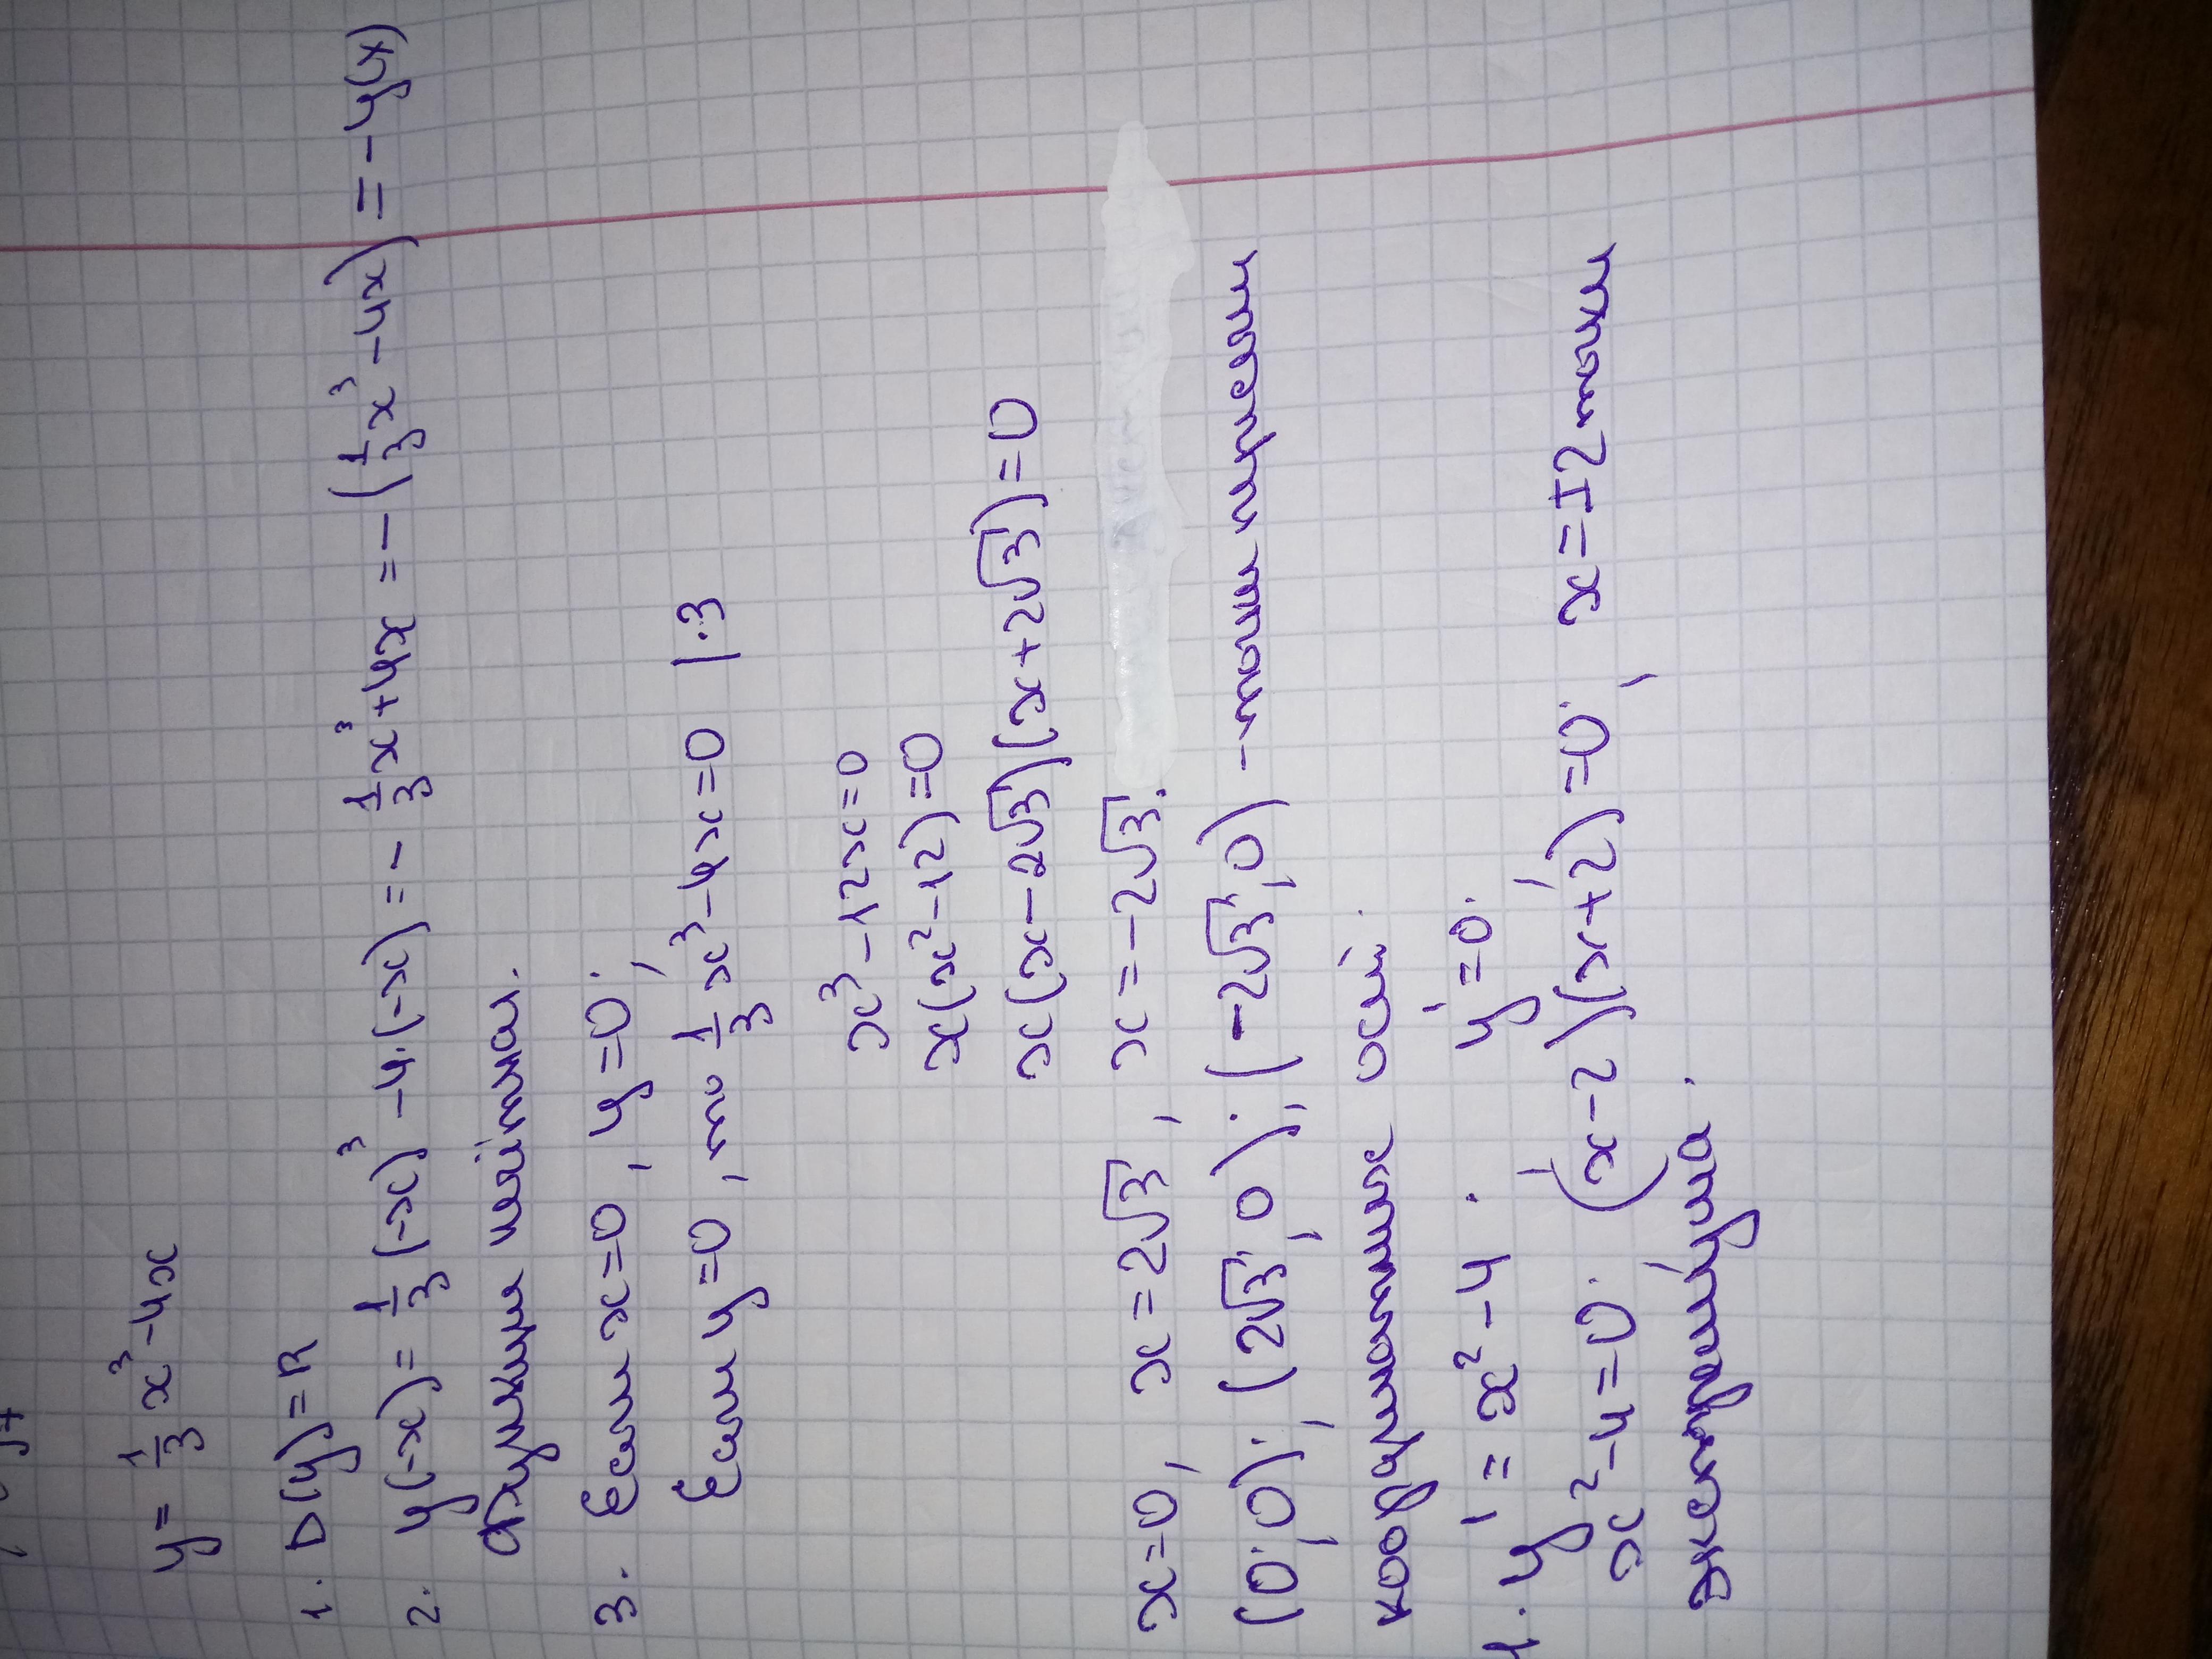 y = 1/3 x³ - 4x
1. D(y) = R
2. y(-x) = 1/3 (-x)³ - 4·(-x) = - 1/3 x³ + 4x = - (1/3 x³ - 4x) = - y(x)
функция нечётная.
3. Если x = 0, y = 0;
Если y = 0, то 1/3 x³ - 4x = 0 |·3
x³ - 12x = 0
x(x² - 12) = 0
x(x - 2√3)(x + 2√3) = 0
x = 0, x = 2√3, x = -2√3.
(0; 0); (2√3; 0); (-2√3; 0) - точки пересечения
координатных осей.
4. y' = x² - 4. y' = 0.
x² - 4 = 0. (x - 2)(x + 2) = 0; x = ±2 точки
экстремума.